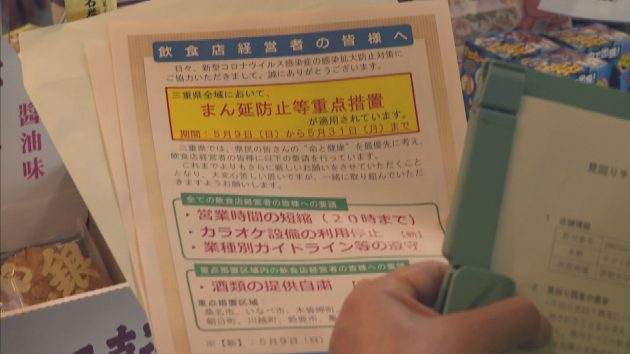 飲食店経営者の皆様へ
日々、新型コロナウイルス感染症の感染拡大防止対策に
ご協力いただきまして、誠にありがとうございます。
三重県全域において、
まん延防止等重点措置
が適用されています。
期間：５月９日（日）から５月３１日（月）まで
三重県では、県民の皆さんの“命と健康”を最優先に考え、
飲食店経営者の皆様に以下の要請を行っています。
これまでよりもさらに厳しいお願いをさせていただくこと
となり、大変心苦しい思いですが、一緒に取り組んでいただ
きますようお願いします。
全ての飲食店経営者の皆様への要請
・営業時間の短縮（２０時まで）
・カラオケ設備の利用停止 【新】
・業種別ガイドライン等の遵守
重点措置区域内の飲食店経営者の皆様への要請
・酒類の提供自粛
重点措置区域
桑名市、いなべ市、木曽岬町
朝日町、川越町、鈴鹿市、亀
※【新】：５月９日（日）
醤油味
銀
見回り
１ 店舗情報